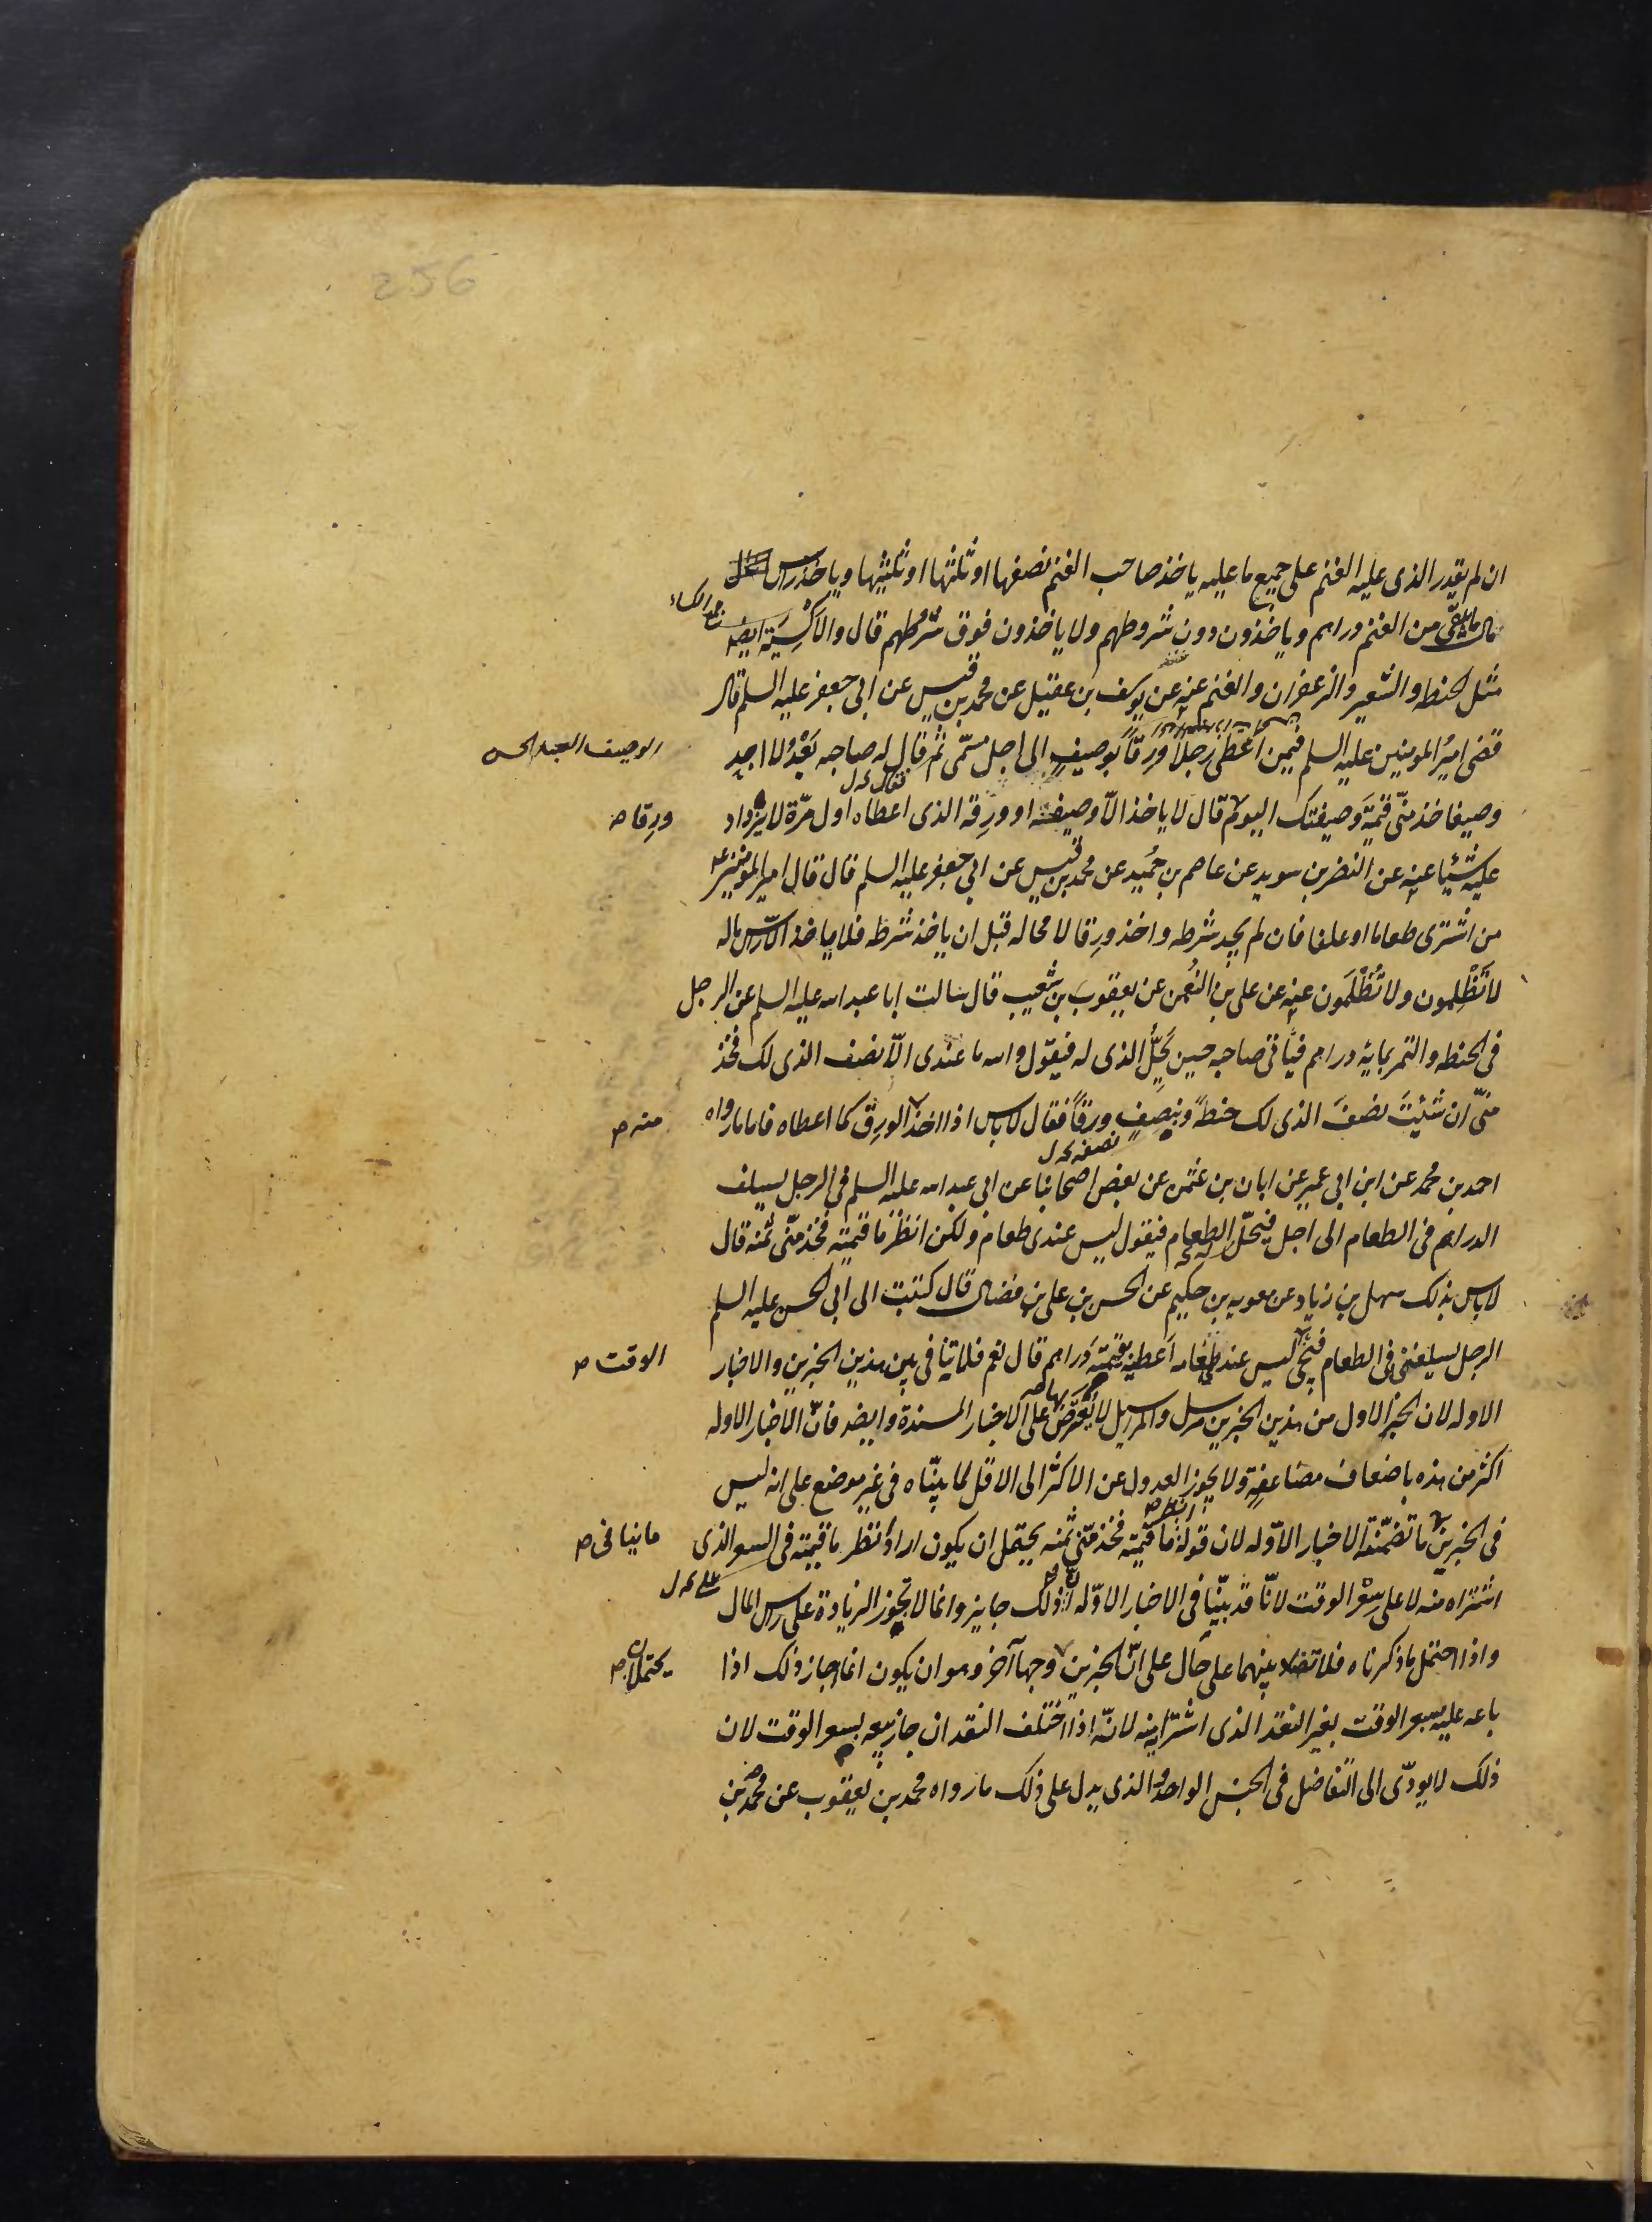 256
ان لم يقدر الذى عليه الغنم على جميع ما عليه ياخذ صاحب الغنم نصفها او ثلثها او ثلثيها وياخذ راس
مال ما بقى من الغنم دراهم وياخذون دون شروطهم ولا ياخذون فوق شروطهم قال والاكسية ايضا
مثل الحنطه والشعير والزعفران والغنم عنه عن يوسف بن عقيل عن محمد بن قيس عن ابى جعفر عليه السلم قال
قضى امير المومنين عليه السلم فيمن اعطى رجلا ورقا بوصيف الى اجل مسمى ثم قال له صاحبه بعد لا اجد
الوصيف العبد
وصيفا خذ منى قيمة وصيفتك اليوم قال لا ياخذ الا وصيفه او ورقه الذى اعطاه اول مرة لا يزداد
فقال
ورقا ص
عليه شيئا عنه عن النضر بن سويد عن عاصم بن حميد عن محمد بن قيس عن ابى جعفر عليه السلم قال قال امير المومنين ع
من اشترى طعاما او علفا فان لم يجد شرطه واخذ ورقا لا محاله قبل ان ياخذ شرطه فلا ياخذ الا راس ماله
لا تظلمون ولا تظلمون عنه عن على بن النعمن عن يعقوب بن شعيب قال سالت ابا عبد الله عليه السلم عن الرجل
فى الحنطه والتمر بماية درهم فياتى صاحبه حين يحل الذى له فيقول والله ما عندى الا نصف الذى لك فخذ
منى ان شئت نصف الذى لك حنطة وبنصف ورقا فقال لا باس اذا اخذ الورق كما اعطاه فاما ما رواه
منه ص
نصفه
احمد بن محمد عن ابن ابى عمير عن ابان بن عثمن عن بعض اصحابنا عن ابى عبد الله عليه السلم فى الرجل يسلف
الدراهم فى الطعام الى اجل فيحل الطعام فيقول ليس عندى طعام ولكن انظر ما قيمته فخذ منى ثمنه قال
لا باس بذلك سهل بن زياد عن معويه بن حكيم عن الحسن بن على بن فضال قال كتبت الى ابى الحسن عليه السلم
الرجل يسلفنى فى الطعام فيجئ الوقت ليس عندى طعام اعطيه بقيمته دراهم قال نعم فلا تنافى بين هذين الخبرين والاخبار
الوقت ص
الاوله لان الخبر الاول من هذين الخبرين مرسل والمراسيل لا يعترض بها على الاخبار المسندة وايضا فان الاخبار الاوله
اكثر من هذه باضعاف مضاعفة ولا يجوز العدول عن الاكثر الى الاقل لما بيناه فى غير موضع على انه ليس
فى الخبرين ما تضمنته الاخبار الاوله لان قوله انظر ما قيمته فخذ منى ثمنه يحتمل ان يكون اراد انظر ما قيمته فى السعر الذى
ما ينافى ص
اشتراه منه لا على سعر الوقت لانا قد بينا فى الاخبار الاوله ان ذلك جايز وانما لا تجوز الزيادة على راس المال
واذا احتمل ما ذكرناه فلا تضاد بينهما على حال على ان الخبرين وجها آخر وهو ان يكون انما جاز ذلك اذا
يحتملان ص
باعه عليه بسعر الوقت بغير النقد الذى اشتراه منه لانه اذا اختلف النقدان جاز بيعه بسعر الوقت لان
ذلك لا يودى الى التفاضل فى الجنس الواحد والذى يدل على ذلك ما رواه محمد بن يعقوب عن محمد بن